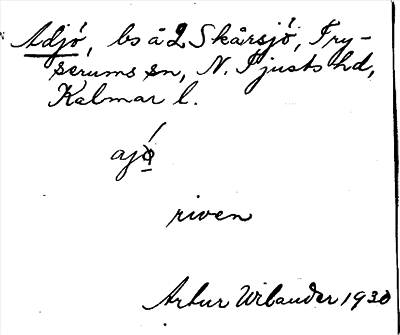 Adjö, bs å 2 Skårsjö, Try-
serums sn, N. Tjusts hd,
Kalmar l.
ajö
riven
Artur Wilander 1930